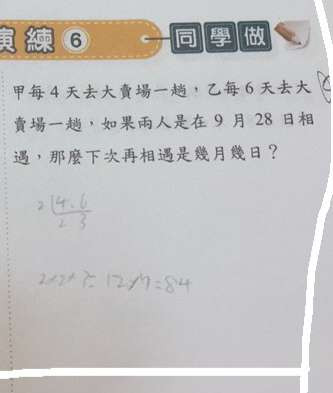 演練6 同學做
甲每4天去大賣場一趟,乙每6天去大
賣場一趟,如果兩人是在9月28日相
遇,那麼下次再相遇是幾月幾日?
2 4.6
2 3
=84